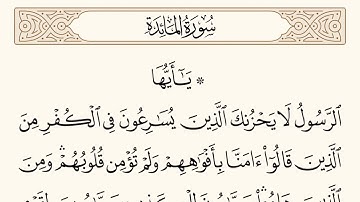 سُورَةُ المَائِدَةِ
۞ يَـٰٓأَيُّهَا
ٱلرَّسُولُ لَا يَحْزُنكَ ٱلَّذِينَ يُسَـٰرِعُونَ فِى ٱلْكُفْرِ مِنَ
ٱلَّذِينَ قَالُوٓا۟ ءَامَنَّا بِأَفْوَٰهِهِمْ وَلَمْ تُؤْمِن قُلُوبُهُمْ ۛ وَمِنَ